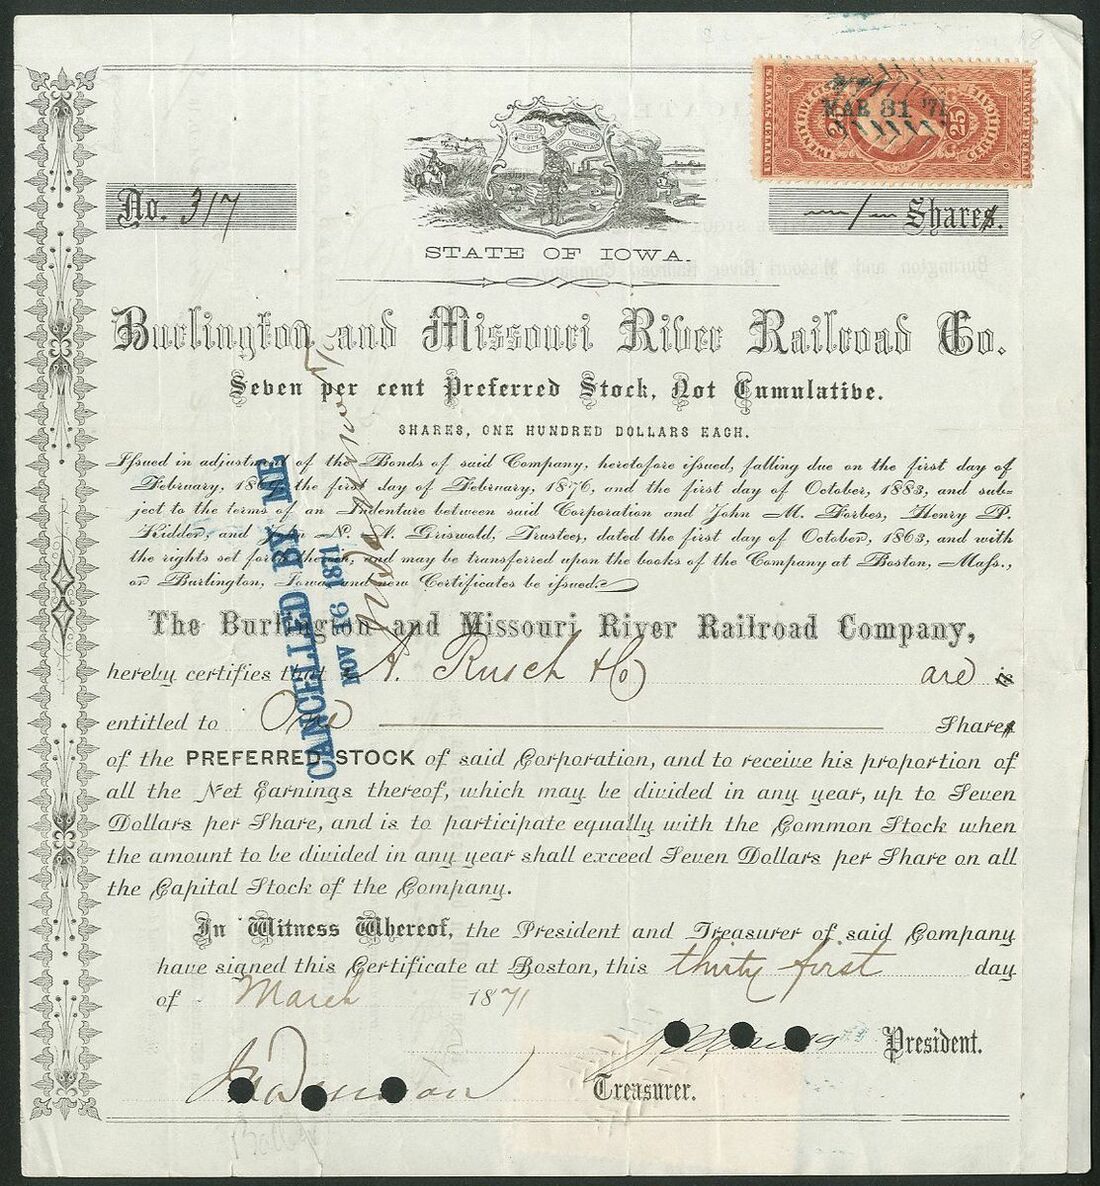 UNITED STATES
INTER. REVENUE
CERTIFICATE
25
25
MAR 31 '71
No. 317
1 Shares.
STATE OF IOWA.
Burlington and Missouri River Railroad Co.
Seven per cent Preferred Stock, Not Cumulative.
SHARES, ONE HUNDRED DOLLARS EACH.
Issued in adjustment of the Bonds of said Company, heretofore issued, falling due on the first day of
February, the first day of February, 1876, and the first day of October, 1883, and sub-
ject to the terms of an Indenture between said Corporation and John M. Forbes, Henry P.
Kidder, and N. A. Griswold, Trustees, dated the first day of October, 1863, and with
the rights set forth therein, and may be transferred upon the books of the Company at Boston, Mass.,
or Burlington, Iowa and new Certificates be issued.
The Burlington and Missouri River Railroad Company,
hereby certifies that A. Rusch & Co are
entitled to One Shares
of the PREFERRED STOCK of said Corporation, and to receive his proportion of
all the Net Earnings thereof, which may be divided in any year, up to Seven
Dollars per Share, and is to participate equally with the Common Stock when
the amount to be divided in any year shall exceed Seven Dollars per Share on all
the Capital Stock of the Company.
In Witness Whereof, the President and Treasurer of said Company
have signed this Certificate at Boston, this thirty first day
of March 1871
President.
Treasurer.
CANCELLED BY ME
NOV 16 1871